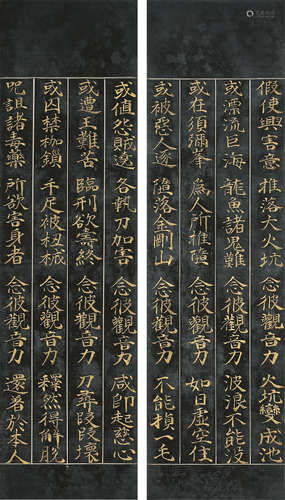 假使興害意 推落大火坑 念彼觀音力 火坑變成池
或漂流巨海 龍魚諸鬼難 念彼觀音力 波浪不能沒
或在須彌峯 為人所推墮 念彼觀音力 如日虛空住
或被惡人逐 墮落金剛山 念彼觀音力 不能損一毛
或值怨賊遶 各執刀加害 念彼觀音力 咸即起慈心
或遭王難苦 臨刑欲壽終 念彼觀音力 刀尋段段壞
或囚禁枷鎖 手足被杻械 念彼觀音力 釋然得解脫
呪詛諸毒藥 所欲害身者 念彼觀音力 還著於本人